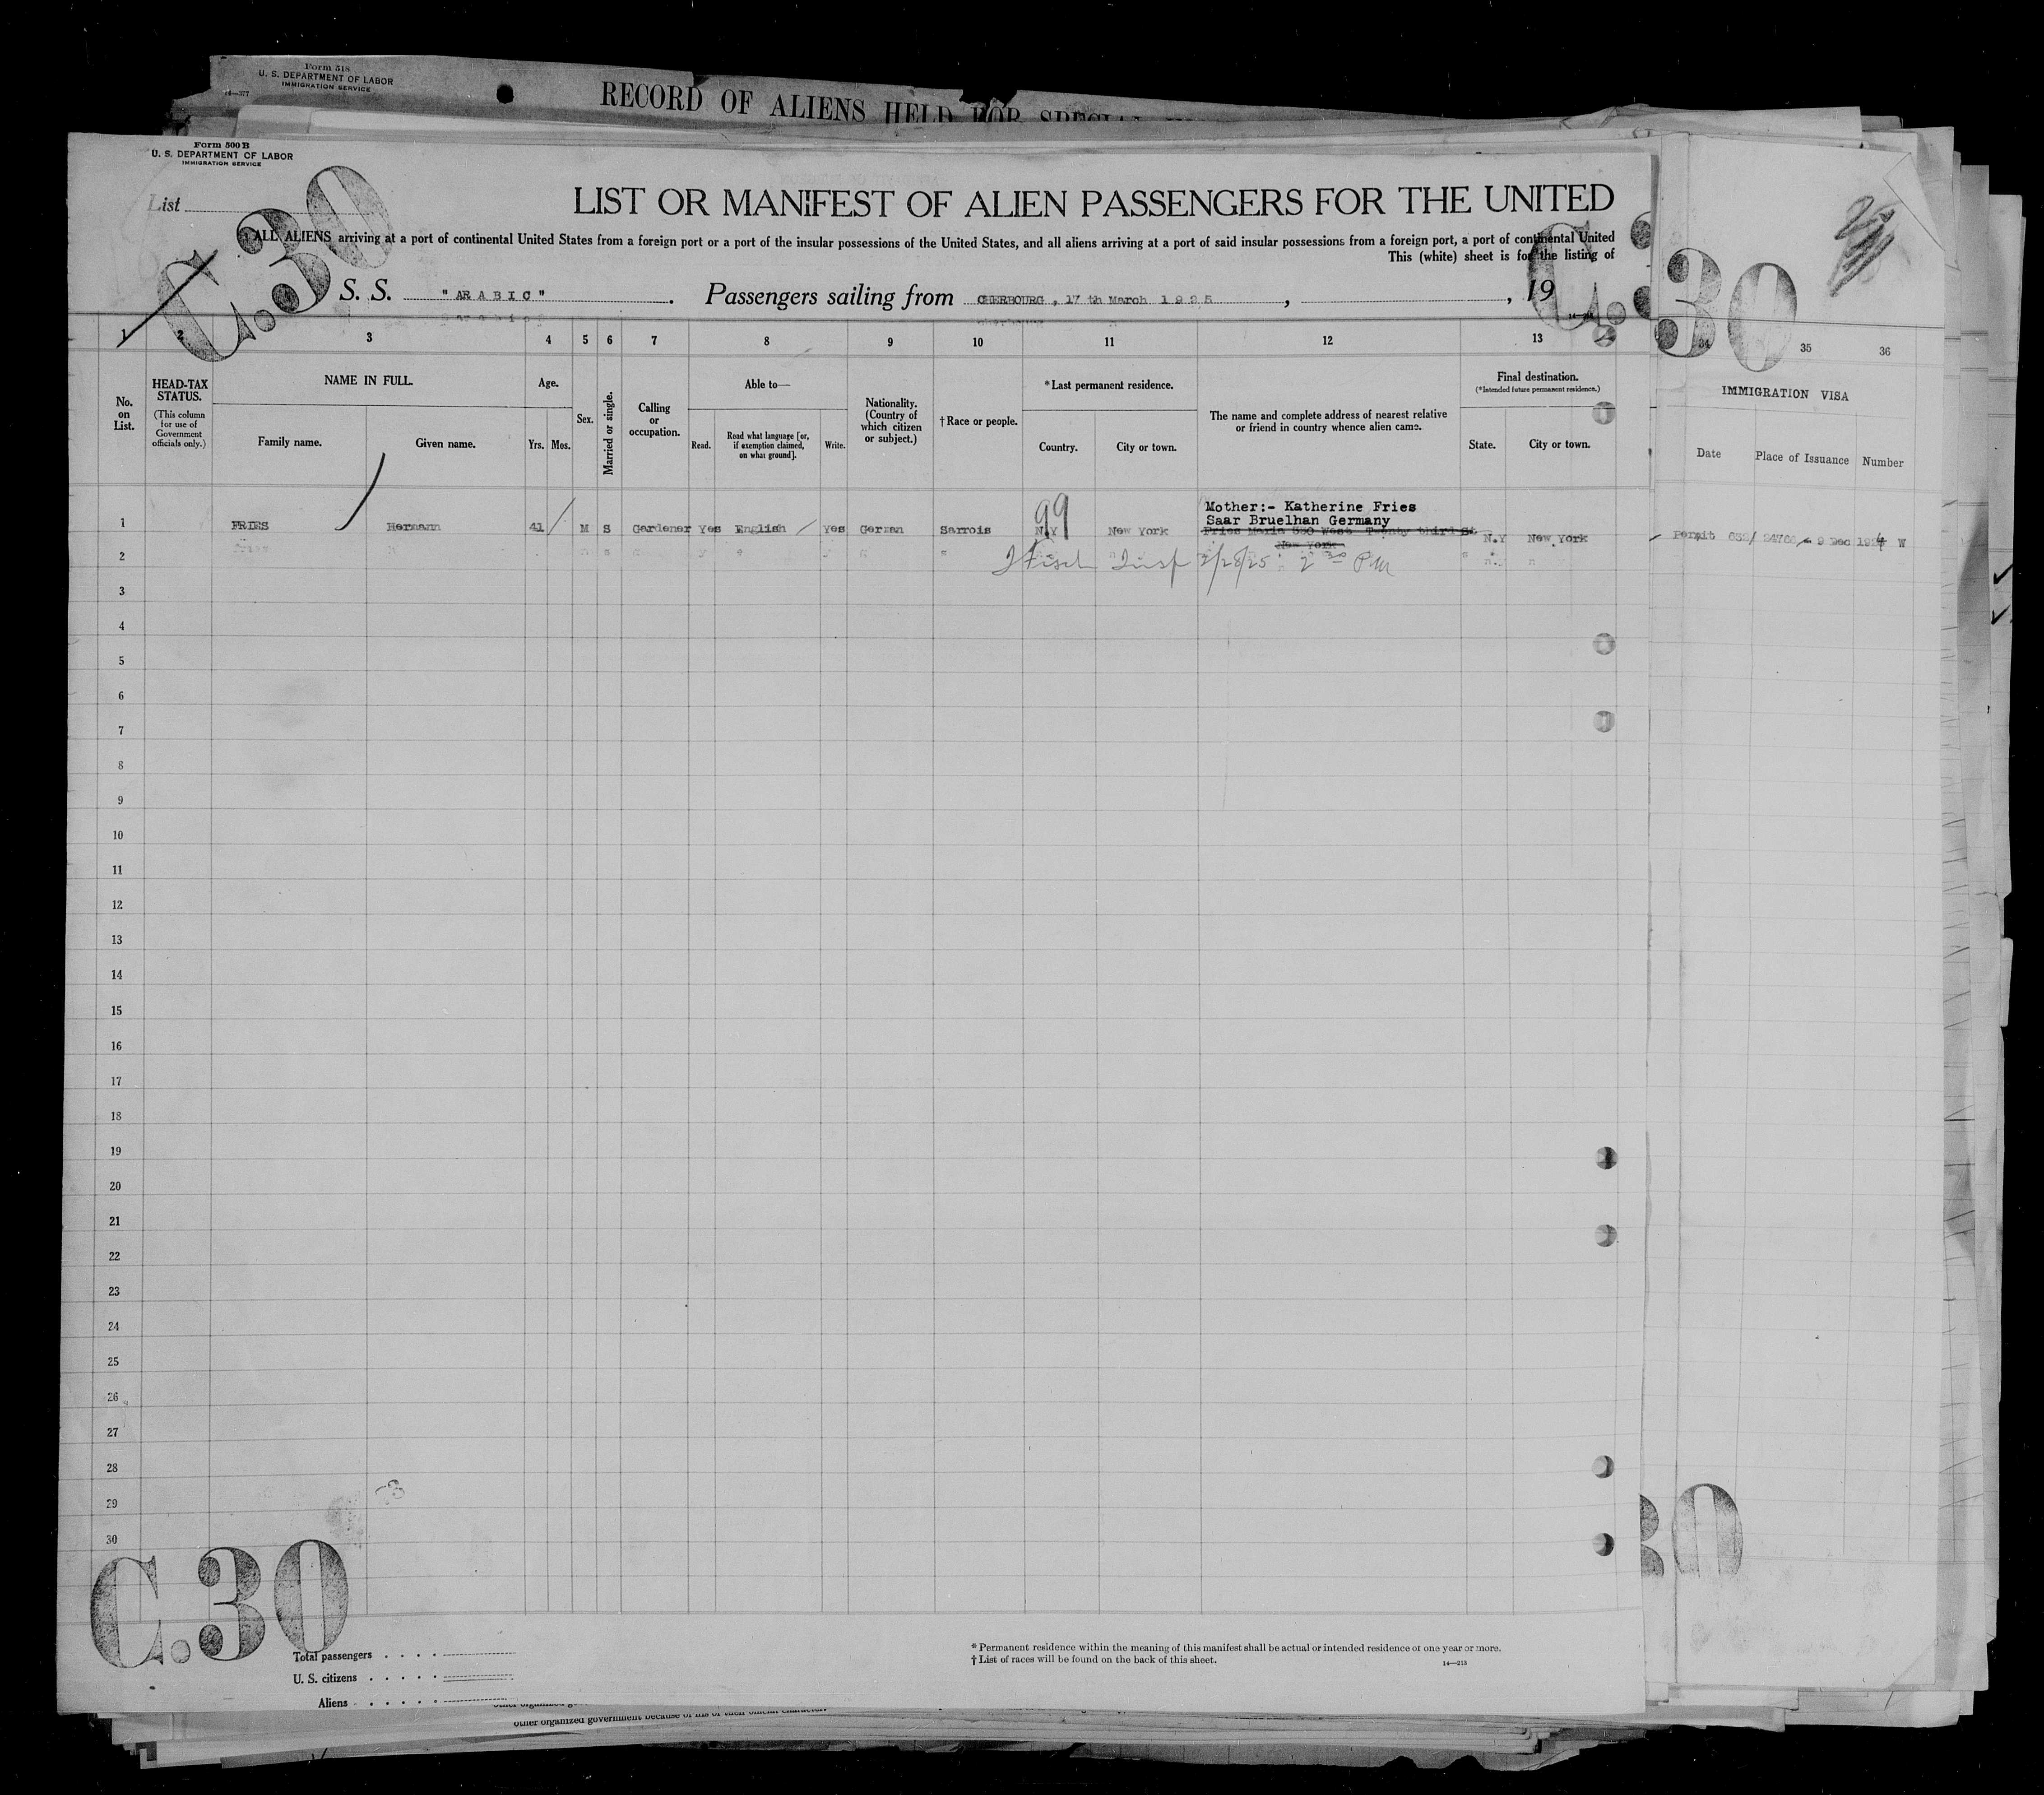 Form 518
U. S. DEPARTMENT OF LABOR
IMMIGRATION SERVICE
14—377
RECORD OF ALIENS HELD FOR SPECIAL
Form 500 B
U. S. DEPARTMENT OF LABOR
IMMIGRATION SERVICE
List
C.30
LIST OR MANIFEST OF ALIEN PASSENGERS FOR THE UNITED
ALL ALIENS arriving at a port of continental United States from a foreign port or a port of the insular possessions of the United States, and all aliens arriving at a port of said insular possessions from a foreign port, a port of continental United
This (white) sheet is for the listing of
C.30
S. S. "ARABIC". Passengers sailing from CHERBOURG, 17 th March 1925, , 19
1 2 3 4 5 6 7 8 9 10 11 12 13 34 35 36
No. on List.
HEAD-TAX STATUS.
(This column for use of Government officials only.)
NAME IN FULL.
Family name. Given name.
Age.
Yrs. Mos.
Sex.
Married or single.
Calling or occupation.
Able to—
Read. Read what language [or, if exemption claimed, on what ground]. Write.
Nationality. (Country of which citizen or subject.)
†Race or people.
*Last permanent residence.
Country. City or town.
The name and complete address of nearest relative or friend in country whence alien came.
Final destination.
(*Intended future permanent residence.)
State. City or town.
IMMIGRATION VISA
Date Place of Issuance Number
99
Mother:- Katherine Fries
Saar Bruelhan Germany
1 FRIES Hermann 41 M S Gardener Yes English Yes German Sarrois N.Y New York Fries Maria 330 West Twenty third St. N.Y New York Permit 9 Dec 1924 W
New York
2 Insp 3/28/25 2 PM
3
4
5
6
7
8
9
10
11
12
13
14
15
16
17
18
19
20
21
22
23
24
25
26
27
28
29
30
3
C.30
30
Total passengers
U. S. citizens
Aliens
* Permanent residence within the meaning of this manifest shall be actual or intended residence of one year or more.
† List of races will be found on the back of this sheet.
14—213
other organized government because of his or their official character.